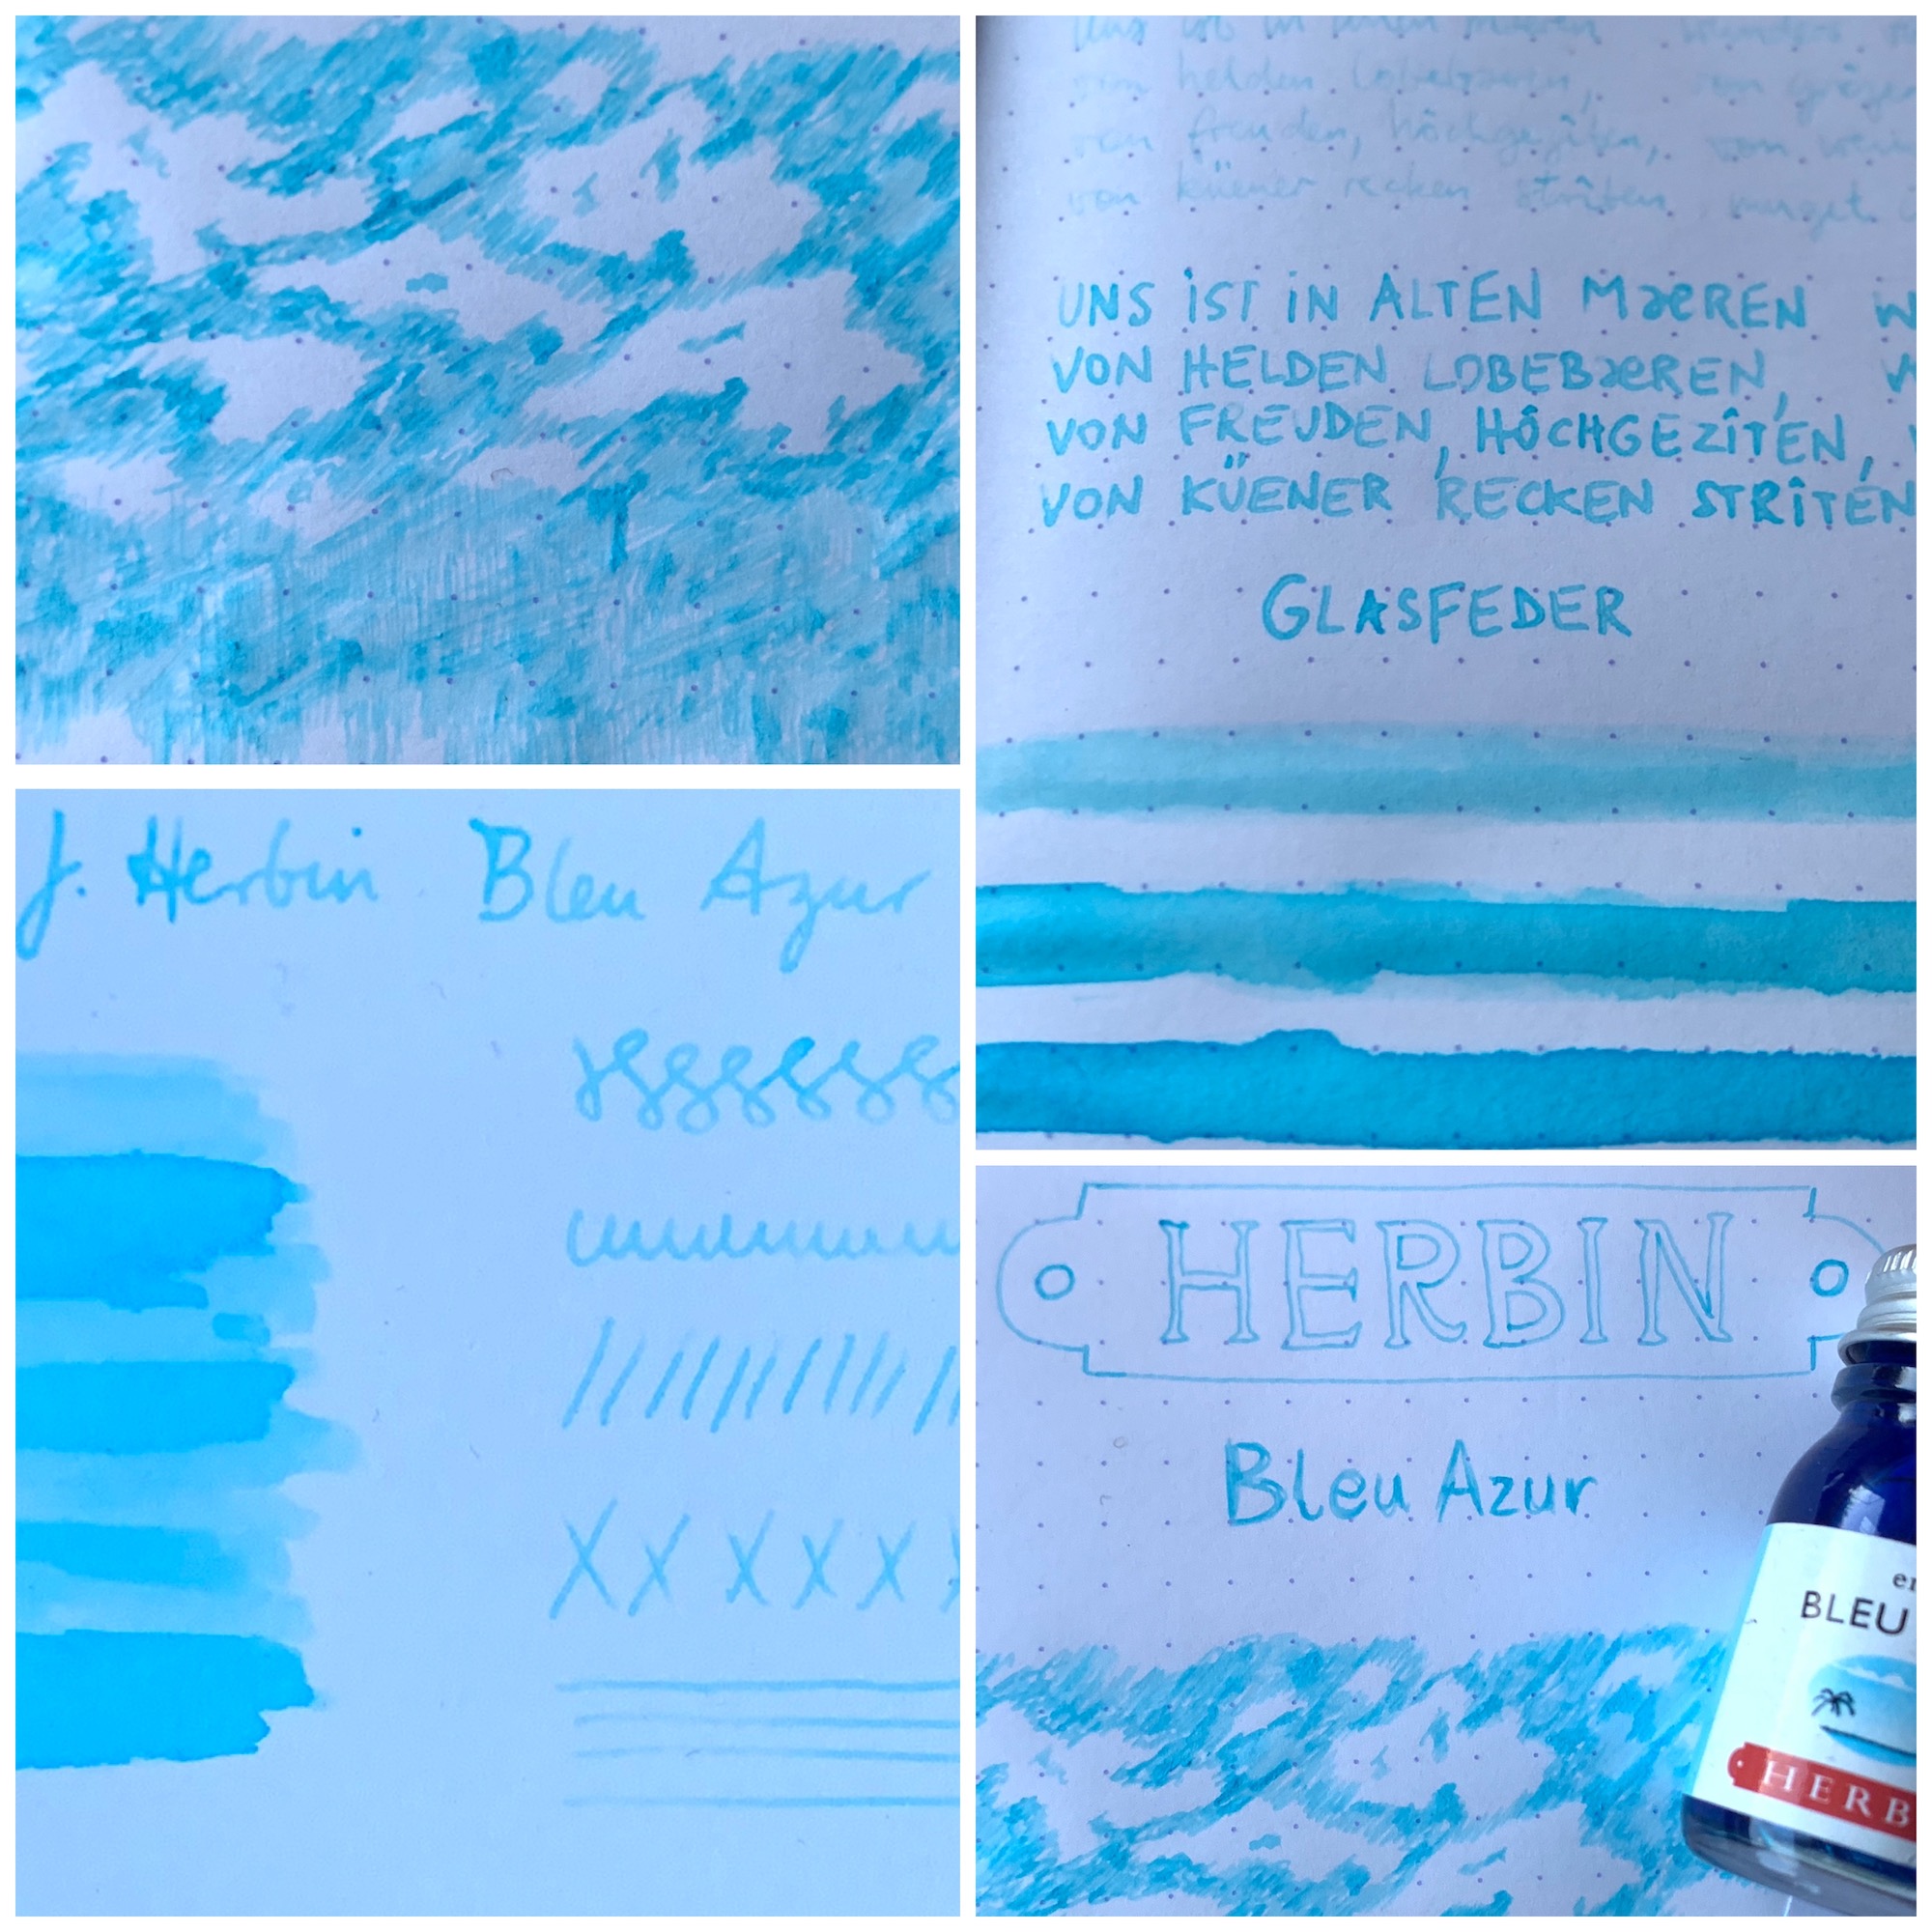 uns ist in alten maeren wunders
von helden lobebaeren, von grôzer
von freuden, hôchgezîten, von wein
von küener recken strîten, muget
UNS IST IN ALTEN MæREN W
VON HELDEN LOBEBæREN, V
VON FREUDEN, HÔCHGEZÎTEN, V
VON KÜENER RECKEN STRÎTEN
GLASFEDER
J. Herbin Bleu Azur
X x x x x
HERBIN
Bleu Azur
BLEU
HERB